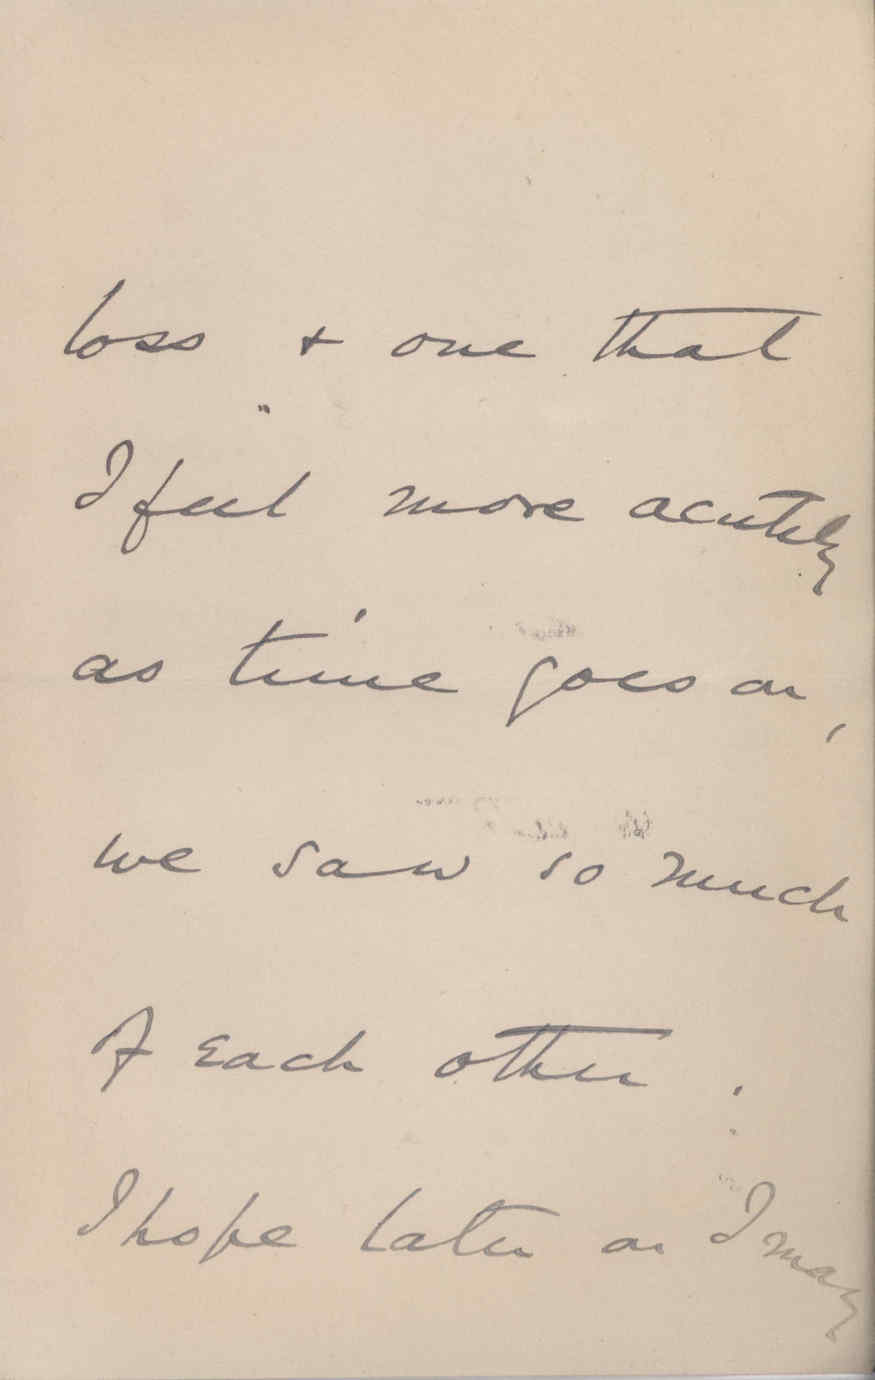 loss + one that
I feel more acutely
as time goes on,
we saw so much
of each other.
I hope later on I may